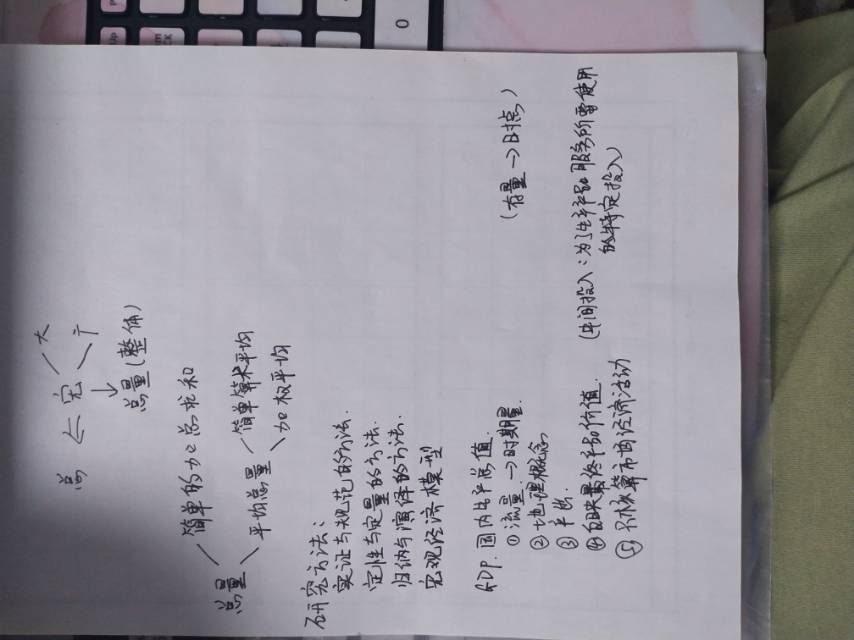 总 ← 宏 大
广
↓
总量(整体)
总量 简单的加总求和
平均总量 简单算术平均
加权平均
研究方法:
实证与规范的方法.
定性与定量的方法.
归纳与演绎的方法.
宏观经济模型
GDP.国内生产总值.
①流量→时期量. (存量→时点)
②地理概念
③
④ 最终产品价值. (中间投入:为了生产产品和服务所需使用
的特定投入)
⑤只核算市场经济活动
0